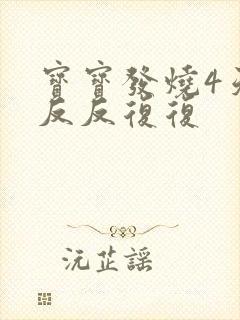 寶寶發燒4天
反反復復
沅芷謠